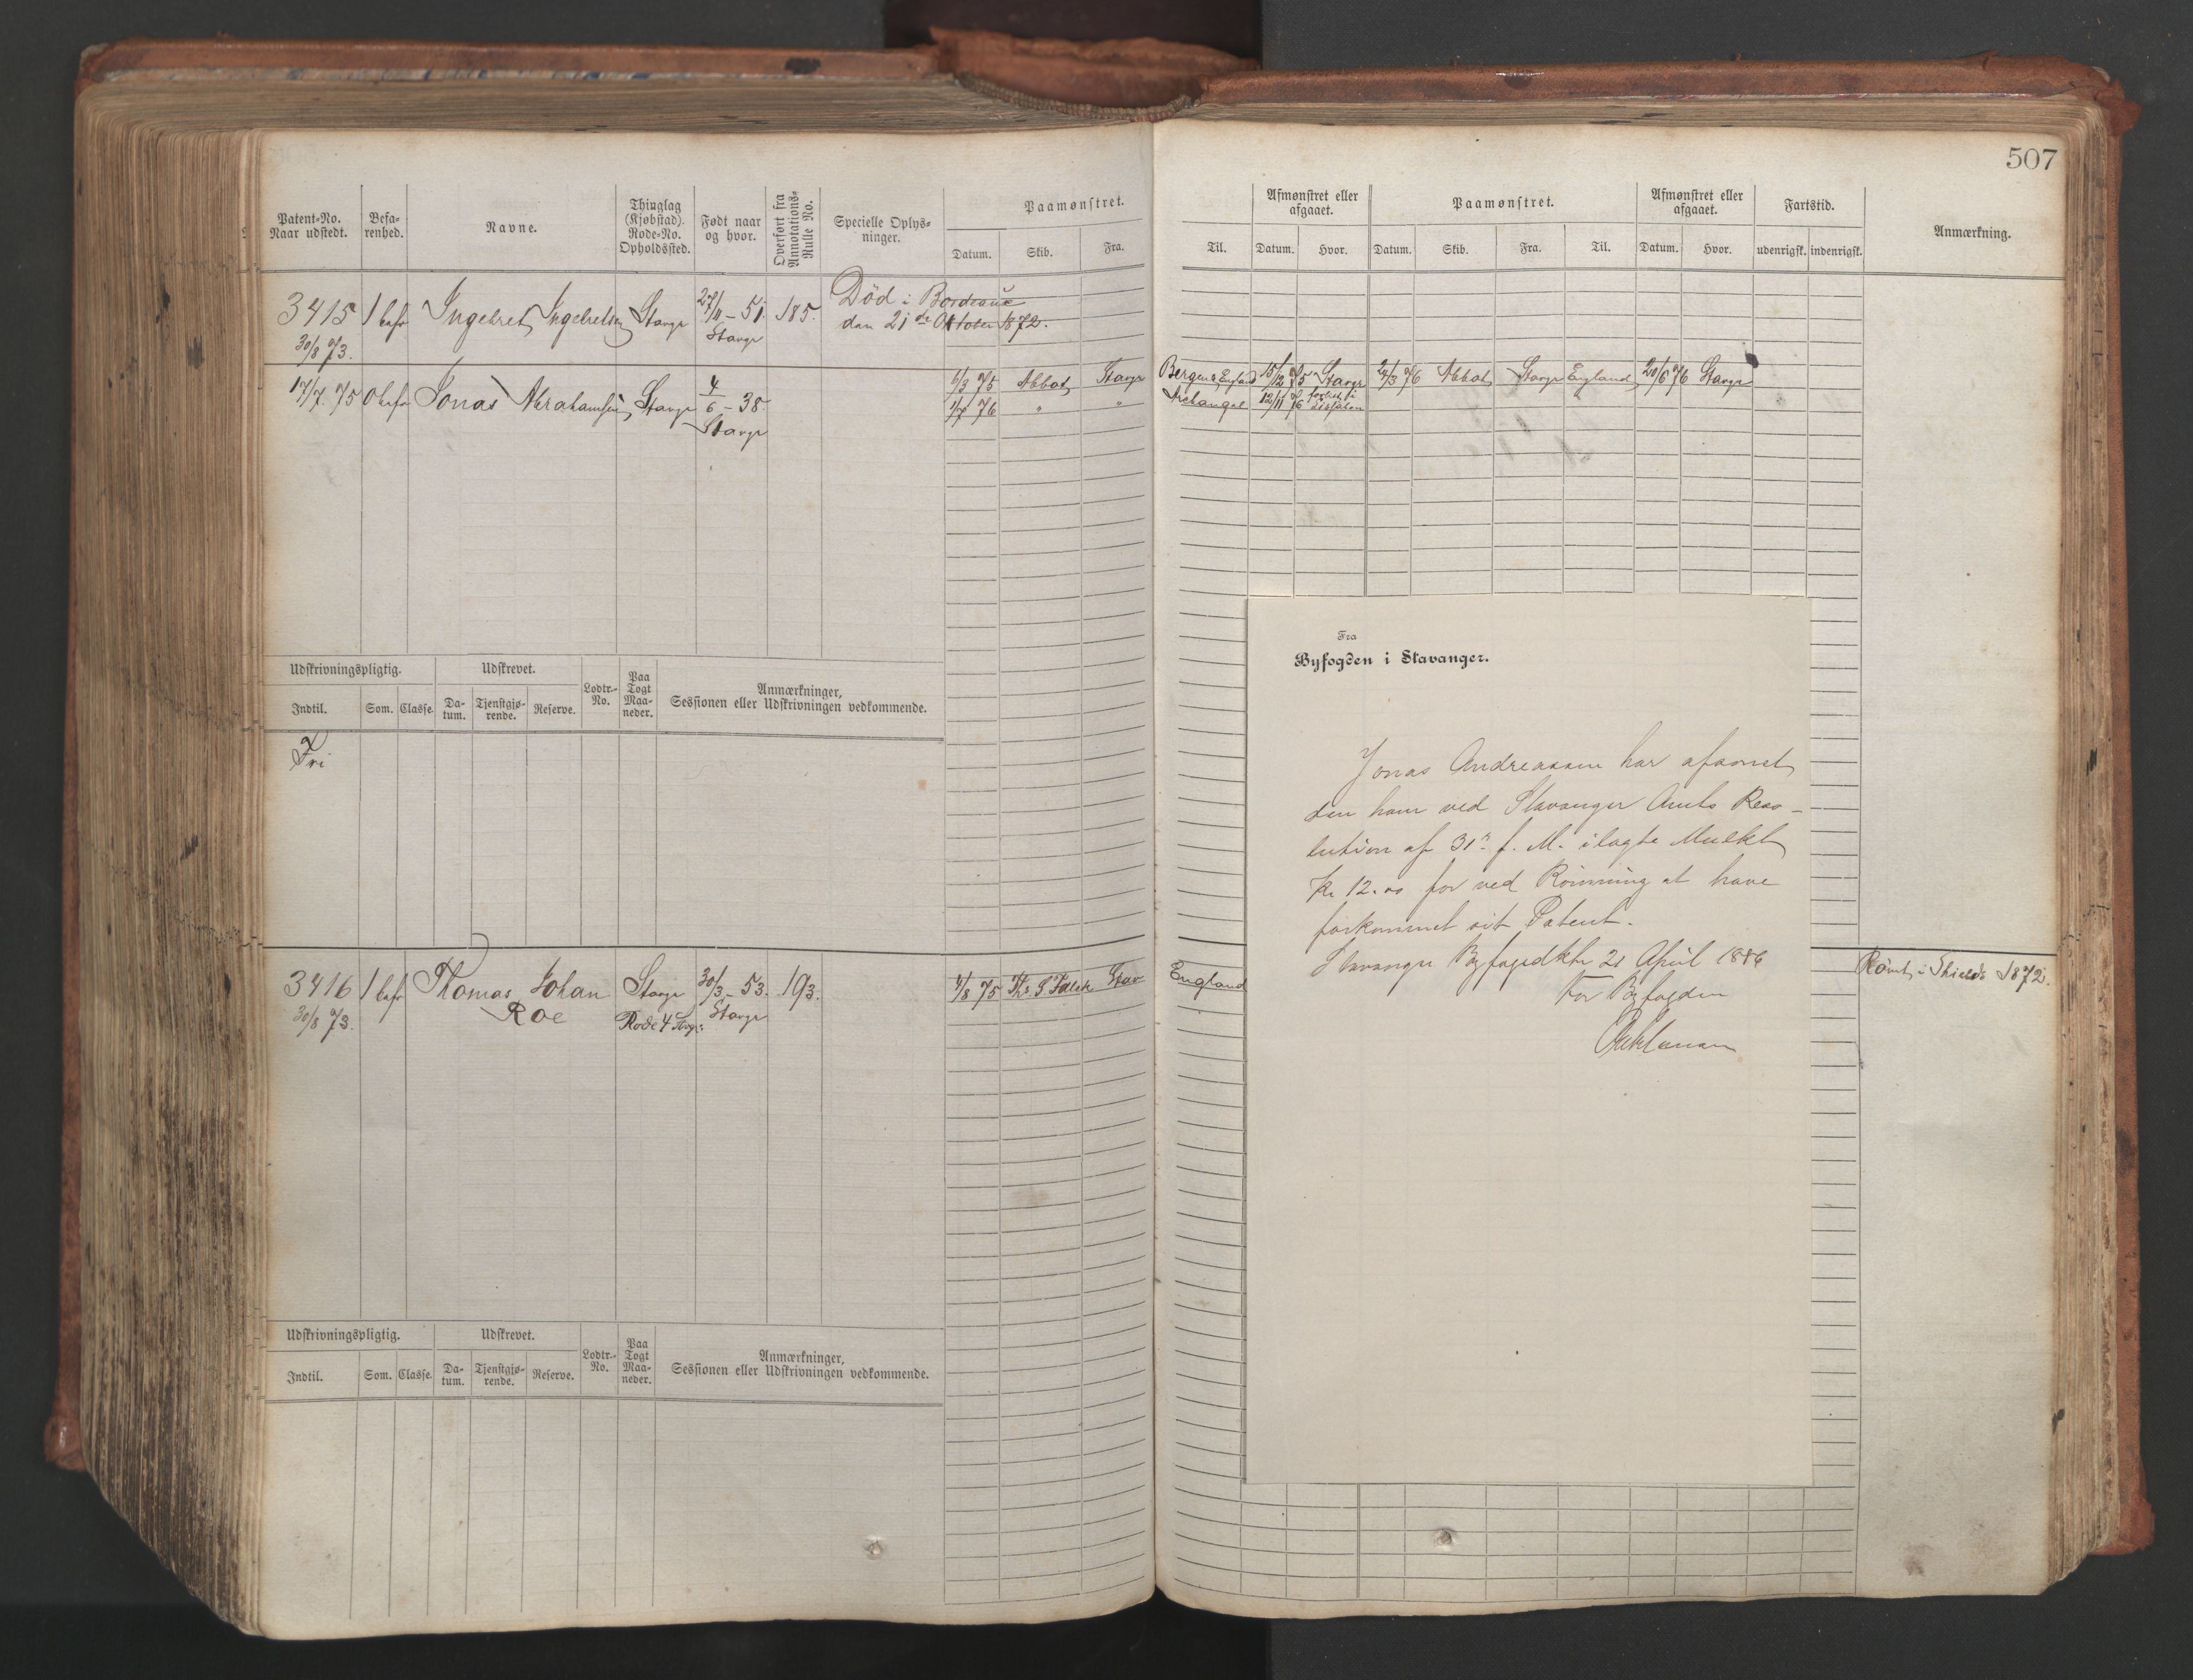 507
Patent-No. Naar udstedt.
Befarenhed.
Navne.
Thinglag (Kjøbstad). Rode-No. Opholdssted.
Født naar og hvor.
Overført fra Annotations-Rulle No.
Specielle Oplysninger.
Paamønstret.
Datum. Skib. Fra. Til.
Afmønstret eller afgaaet.
Datum. Hvor.
Paamønstret.
Datum. Skib. Fra. Til.
Afmønstret eller afgaaet.
Datum. Hvor.
Fartstid.
udenrigsk. indenrigsk.
Anmærkning.
3415 1 befr Ingebret Ingebretsen Stavgr 27/11 - 51. 185. Död i Bordeaux
30/8 73. Stavgr den 21de Oktober 1872.
17/7. 75 0 befr Jonas Abrahamsen Stavgr 4/6 - 38. 6/3 75 Abbot Stavgr Bergen & England 15/12 75 Stavgr 24/3 76 Abbot Stavgr England 20/6 76 Stavgr
Stavgr 1/7 76 " " Archangel 12/11 76 forlist i
Udskrivningspligtig. Udskrevet. Lodtr.-No. Paa Togt Maaneder. Anmærkninger, Sessionen eller Udskrivningen vedkommende.
Indtil. Som. Classe. Datum. Tjenstgjørende. Reserve.
Fri
3416 1 befr Thomas Johan Stavgr 30/3 - 53. 193. 4/8 75 Ths S Falck Stav England Römt i Shields 1872.
30/8 73. Roe Rode 4 Stvgr: Stavgr
Udskrivningspligtig. Udskrevet. Lodtr.-No. Paa Togt Maaneder. Anmærkninger, Sessionen eller Udskrivningen vedkommende.
Indtil. Som. Classe. Datum. Tjenstgjørende. Reserve.
Fra
Byfogden i Stavanger.
Jonas Andreassen har afsonet
den ham ved Stavanger Amts Reso-
lution af 31te f. M. ilagte Mulkt
Kr 12.00 for ved Rømning at have
forkommet sit Patent.
Stavanger Byfogedktr 21 April 1886
For Byfogden